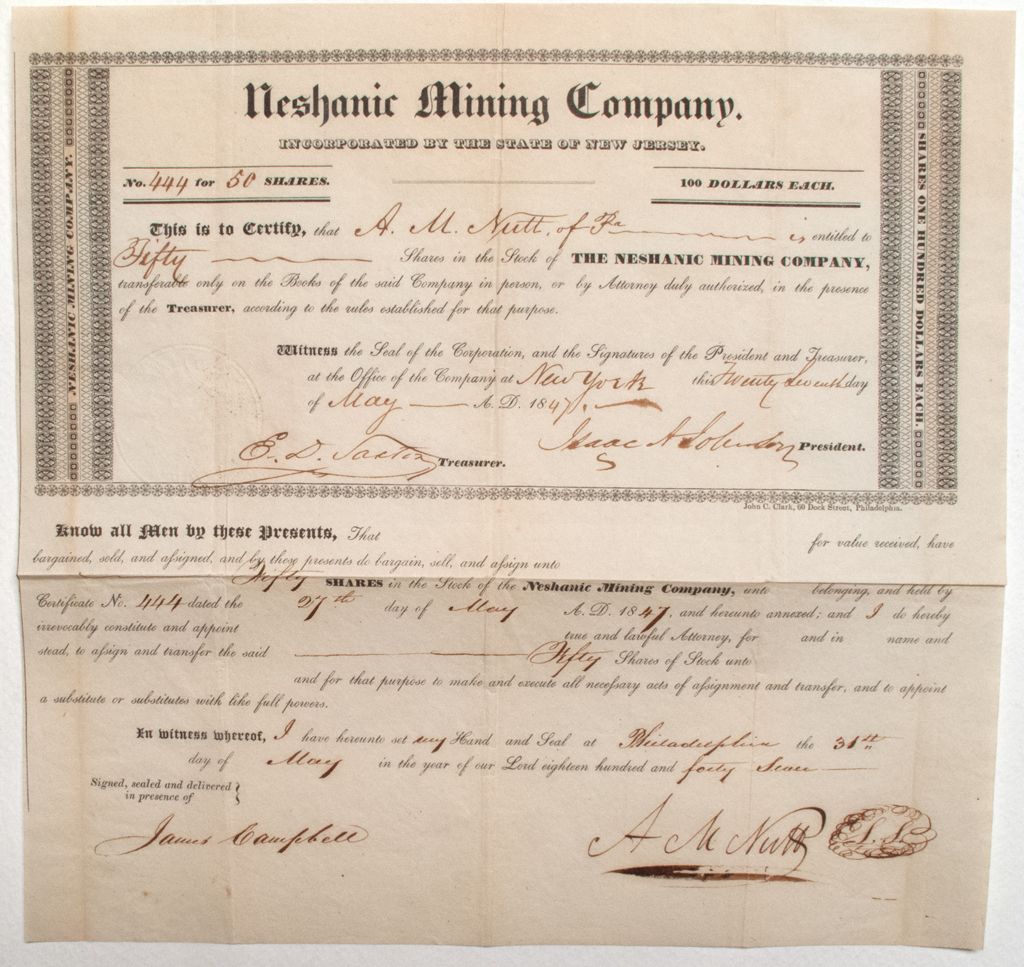 Neshanic Mining Company.
INCORPORATED BY THE STATE OF NEW JERSEY.
No. 444 for 50 SHARES.
100 DOLLARS EACH.
NESHANIC MINING COMPANY.
SHARES ONE HUNDRED DOLLARS EACH.
This is to Certify, that A. M. Nutt, of Pa is entitled to
Fifty Shares in the Stock of THE NESHANIC MINING COMPANY,
transferable only on the Books of the said Company in person, or by Attorney duly authorized, in the presence
of the Treasurer, according to the rules established for that purpose.
Witness the Seal of the Corporation, and the Signatures of the President and Treasurer,
at the Office of the Company at New York this Twenty Seventh day
of May A. D. 1847.
E. D. Treasurer. Isaac President.
John C. Clark, 60 Dock Street, Philadelphia.
Know all Men by these Presents, That for value received, have
bargained, sold, and assigned, and by these presents do bargain, sell, and assign unto
Fifty SHARES in the Stock of the Neshanic Mining Company, unto belonging, and held by
Certificate No. 444 dated the 27th day of May A. D. 1847, and hereunto annexed; and I do hereby
irrevocably constitute and appoint true and lawful Attorney, for and in name and
stead, to assign and transfer the said Fifty Shares of Stock unto
and for that purpose to make and execute all necessary acts of assignment and transfer, and to appoint
a substitute or substitutes with like full powers.
In witness whereof, I have hereunto set my Hand and Seal at Philadelphia the 31st
day of May in the year of our Lord eighteen hundred and forty Seven
Signed, sealed and delivered
in presence of
James Campbell
A M Nutt L. S.